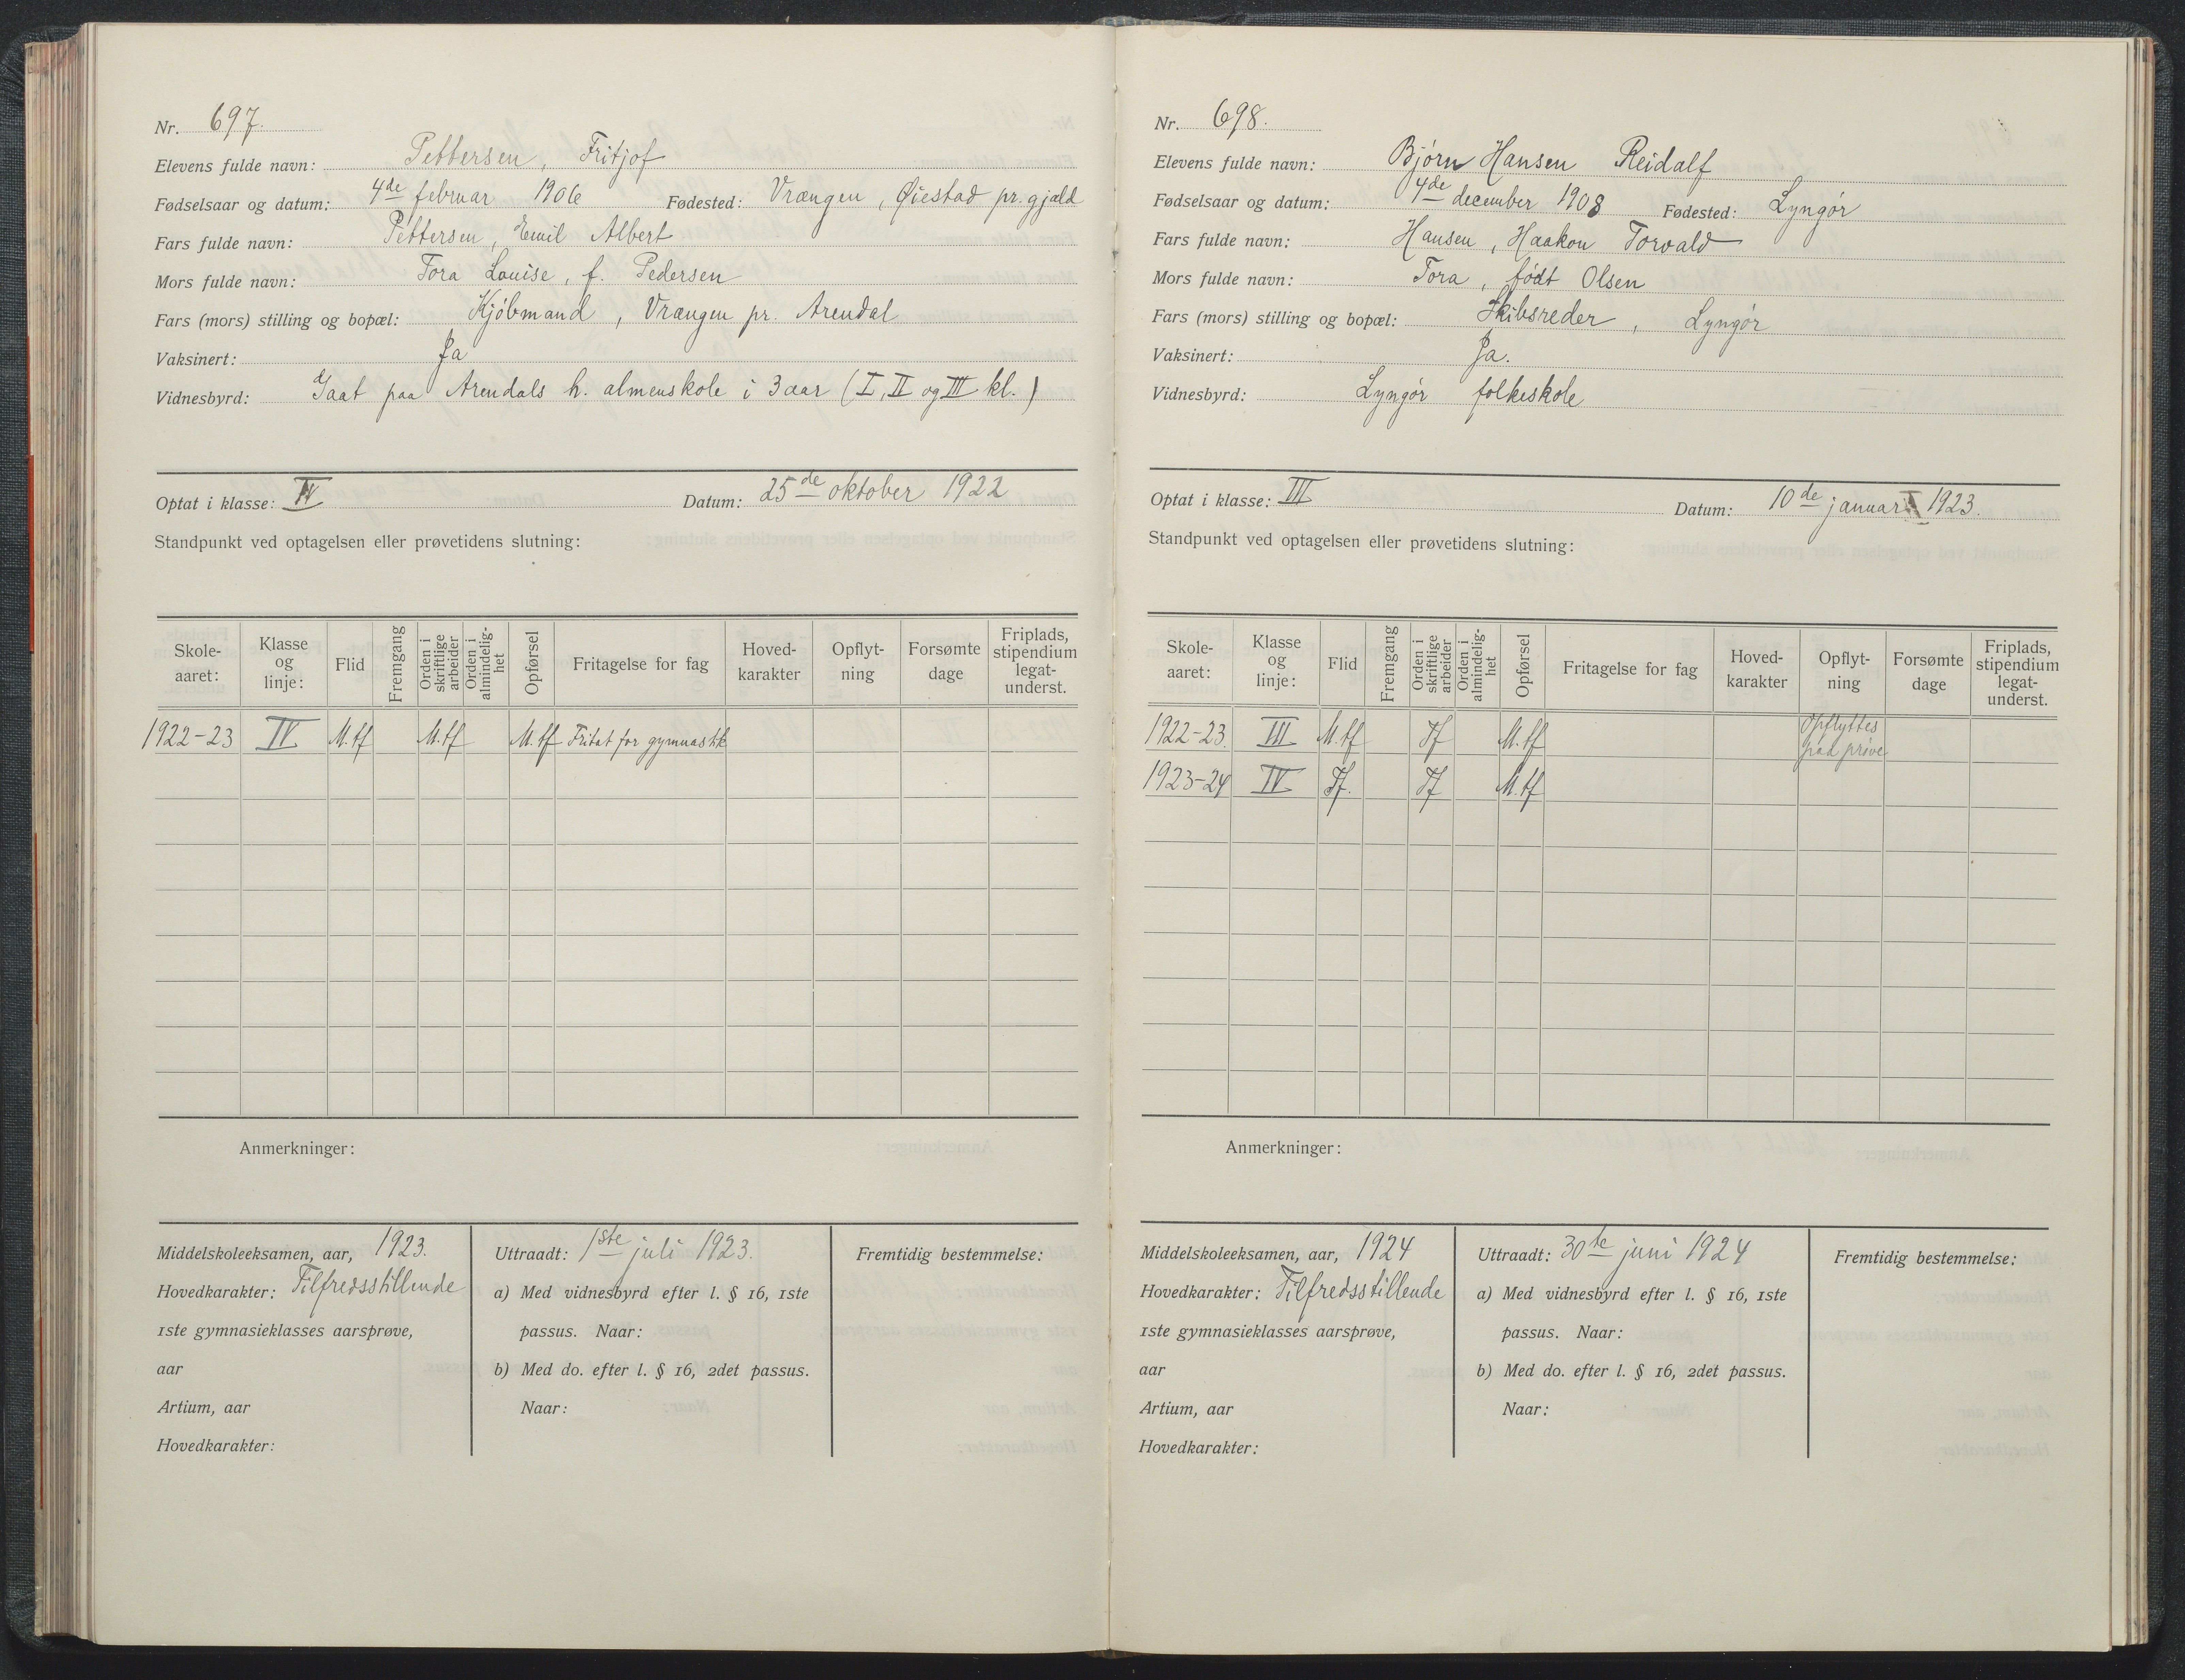 Nr. 697.
Elevens fulde navn: Pettersen, Fritjof
Fødselsaar og datum: 4de februar 1906 Fødested: Vrængen, Øiestad pr.gjæld
Fars fulde navn: Pettersen, Emil Albert
Mors fulde navn: Tora Louise, f. Pedersen
Fars (mors) stilling og bopæl: Kjøbmand, Vrængen pr. Arendal
Vaksinert: Ja
Vidnesbyrd: Gaat paa Arendals h. almenskole i 3 aar (I, II og III kl.)
Optat i klasse: IV Datum: 25de oktober 1922
Standpunkt ved optagelsen eller prøvetidens slutning:
Skole-aaret: Klasse og linje: Flid Fremgang Orden i skriftlige arbeider Orden i almindelig-het Opførsel Fritagelse for fag Hoved-karakter Opflyt-ning Forsømte dage Friplads, stipendium legat-underst.
1922-23 IV M.tf M.tf M.tf Fritat for gymnastik
Anmerkninger:
Middelskoleeksamen, aar, 1923.
Hovedkarakter: Tilfredsstillende
1ste gymnasieklasses aarsprøve,
aar
Artium, aar
Hovedkarakter:
Uttraadt: 1ste juli 1923.
a) Med vidnesbyrd efter l. § 16, 1ste
passus. Naar:
b) Med do. efter l. § 16, 2det passus.
Naar:
Fremtidig bestemmelse:
Nr. 698.
Elevens fulde navn: Bjørn Hansen Reidalf
Fødselsaar og datum: 4de december 1908 Fødested: Lyngør
Fars fulde navn: Hansen, Haakon Torvald
Mors fulde navn: Tora, født Olsen
Fars (mors) stilling og bopæl: Skibsreder, Lyngør
Vaksinert: Ja.
Vidnesbyrd: Lyngør folkeskole
Optat i klasse: III Datum: 10de januar 1923.
Standpunkt ved optagelsen eller prøvetidens slutning:
Skole-aaret: Klasse og linje: Flid Fremgang Orden i skriftlige arbeider Orden i almindelig-het Opførsel Fritagelse for fag Hoved-karakter Opflyt-ning Forsømte dage Friplads, stipendium legat-underst.
1922-23. III M.tf Tf M.tf Opflyttes paa prøve
1923-24 IV Tf. Tf M.tf
Anmerkninger:
Middelskoleeksamen, aar, 1924
Hovedkarakter: Tilfredsstillende
1ste gymnasieklasses aarsprøve,
aar
Artium, aar
Hovedkarakter:
Uttraadt: 30te juni 1924
a) Med vidnesbyrd efter l. § 16, 1ste
passus. Naar:
b) Med do. efter l. § 16, 2det passus.
Naar:
Fremtidig bestemmelse: